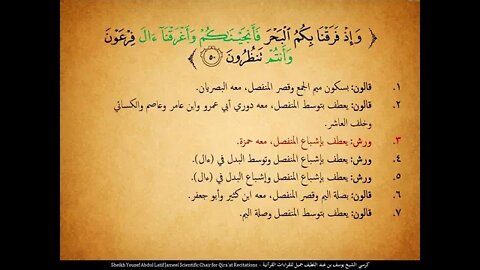 ﴿ وَإِذْ فَرَقْنَا بِكُمُ ٱلْبَحْرَ فَأَنجَيْنَٰكُمْ وَأَغْرَقْنَآ ءَالَ فِرْعَوْنَ
وَأَنتُمْ تَنظُرُونَ ٥٠ ﴾
١. قالون: بسكون ميم الجمع وقصر المنفصل، معه البصريان.
٢. قالون: يعطف بتوسط المنفصل، معه دوري أبي عمرو وابن عامر وعاصم والكسائي
وخلف العاشر.
٣. ورش: يعطف بإشباع المنفصل، معه حمزة.
٤. ورش: يعطف بإشباع المنفصل وتوسط البدل في (ءال).
٥. ورش: يعطف بإشباع المنفصل وإشباع البدل في (ءال).
٦. قالون: بصلة اليم وقصر المنفصل، معه ابن كثير وأبو جعفر.
٧. قالون: يعطف بتوسط المنفصل وصلة اليم.
كرسي الشيخ يوسف بن عبد اللطيف جميل للقراءات القرآنية - Sheikh Yousef Abdul Latif Jameel Scientific Chair for Qira'at Recitations